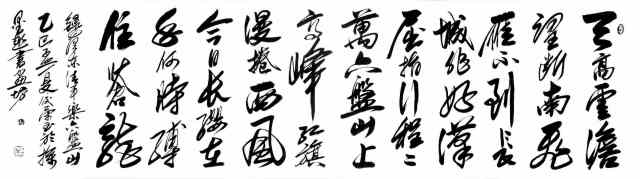 天高雲澹
望斷南飛
雁不到長
城非好漢
屈指行程二
萬六盤山上
高峰紅旗
漫捲西風
今日長纓在
手何時縛
住蒼龍
錄澤東清平樂六盤山
乙巳孟夏書於
書畫坊